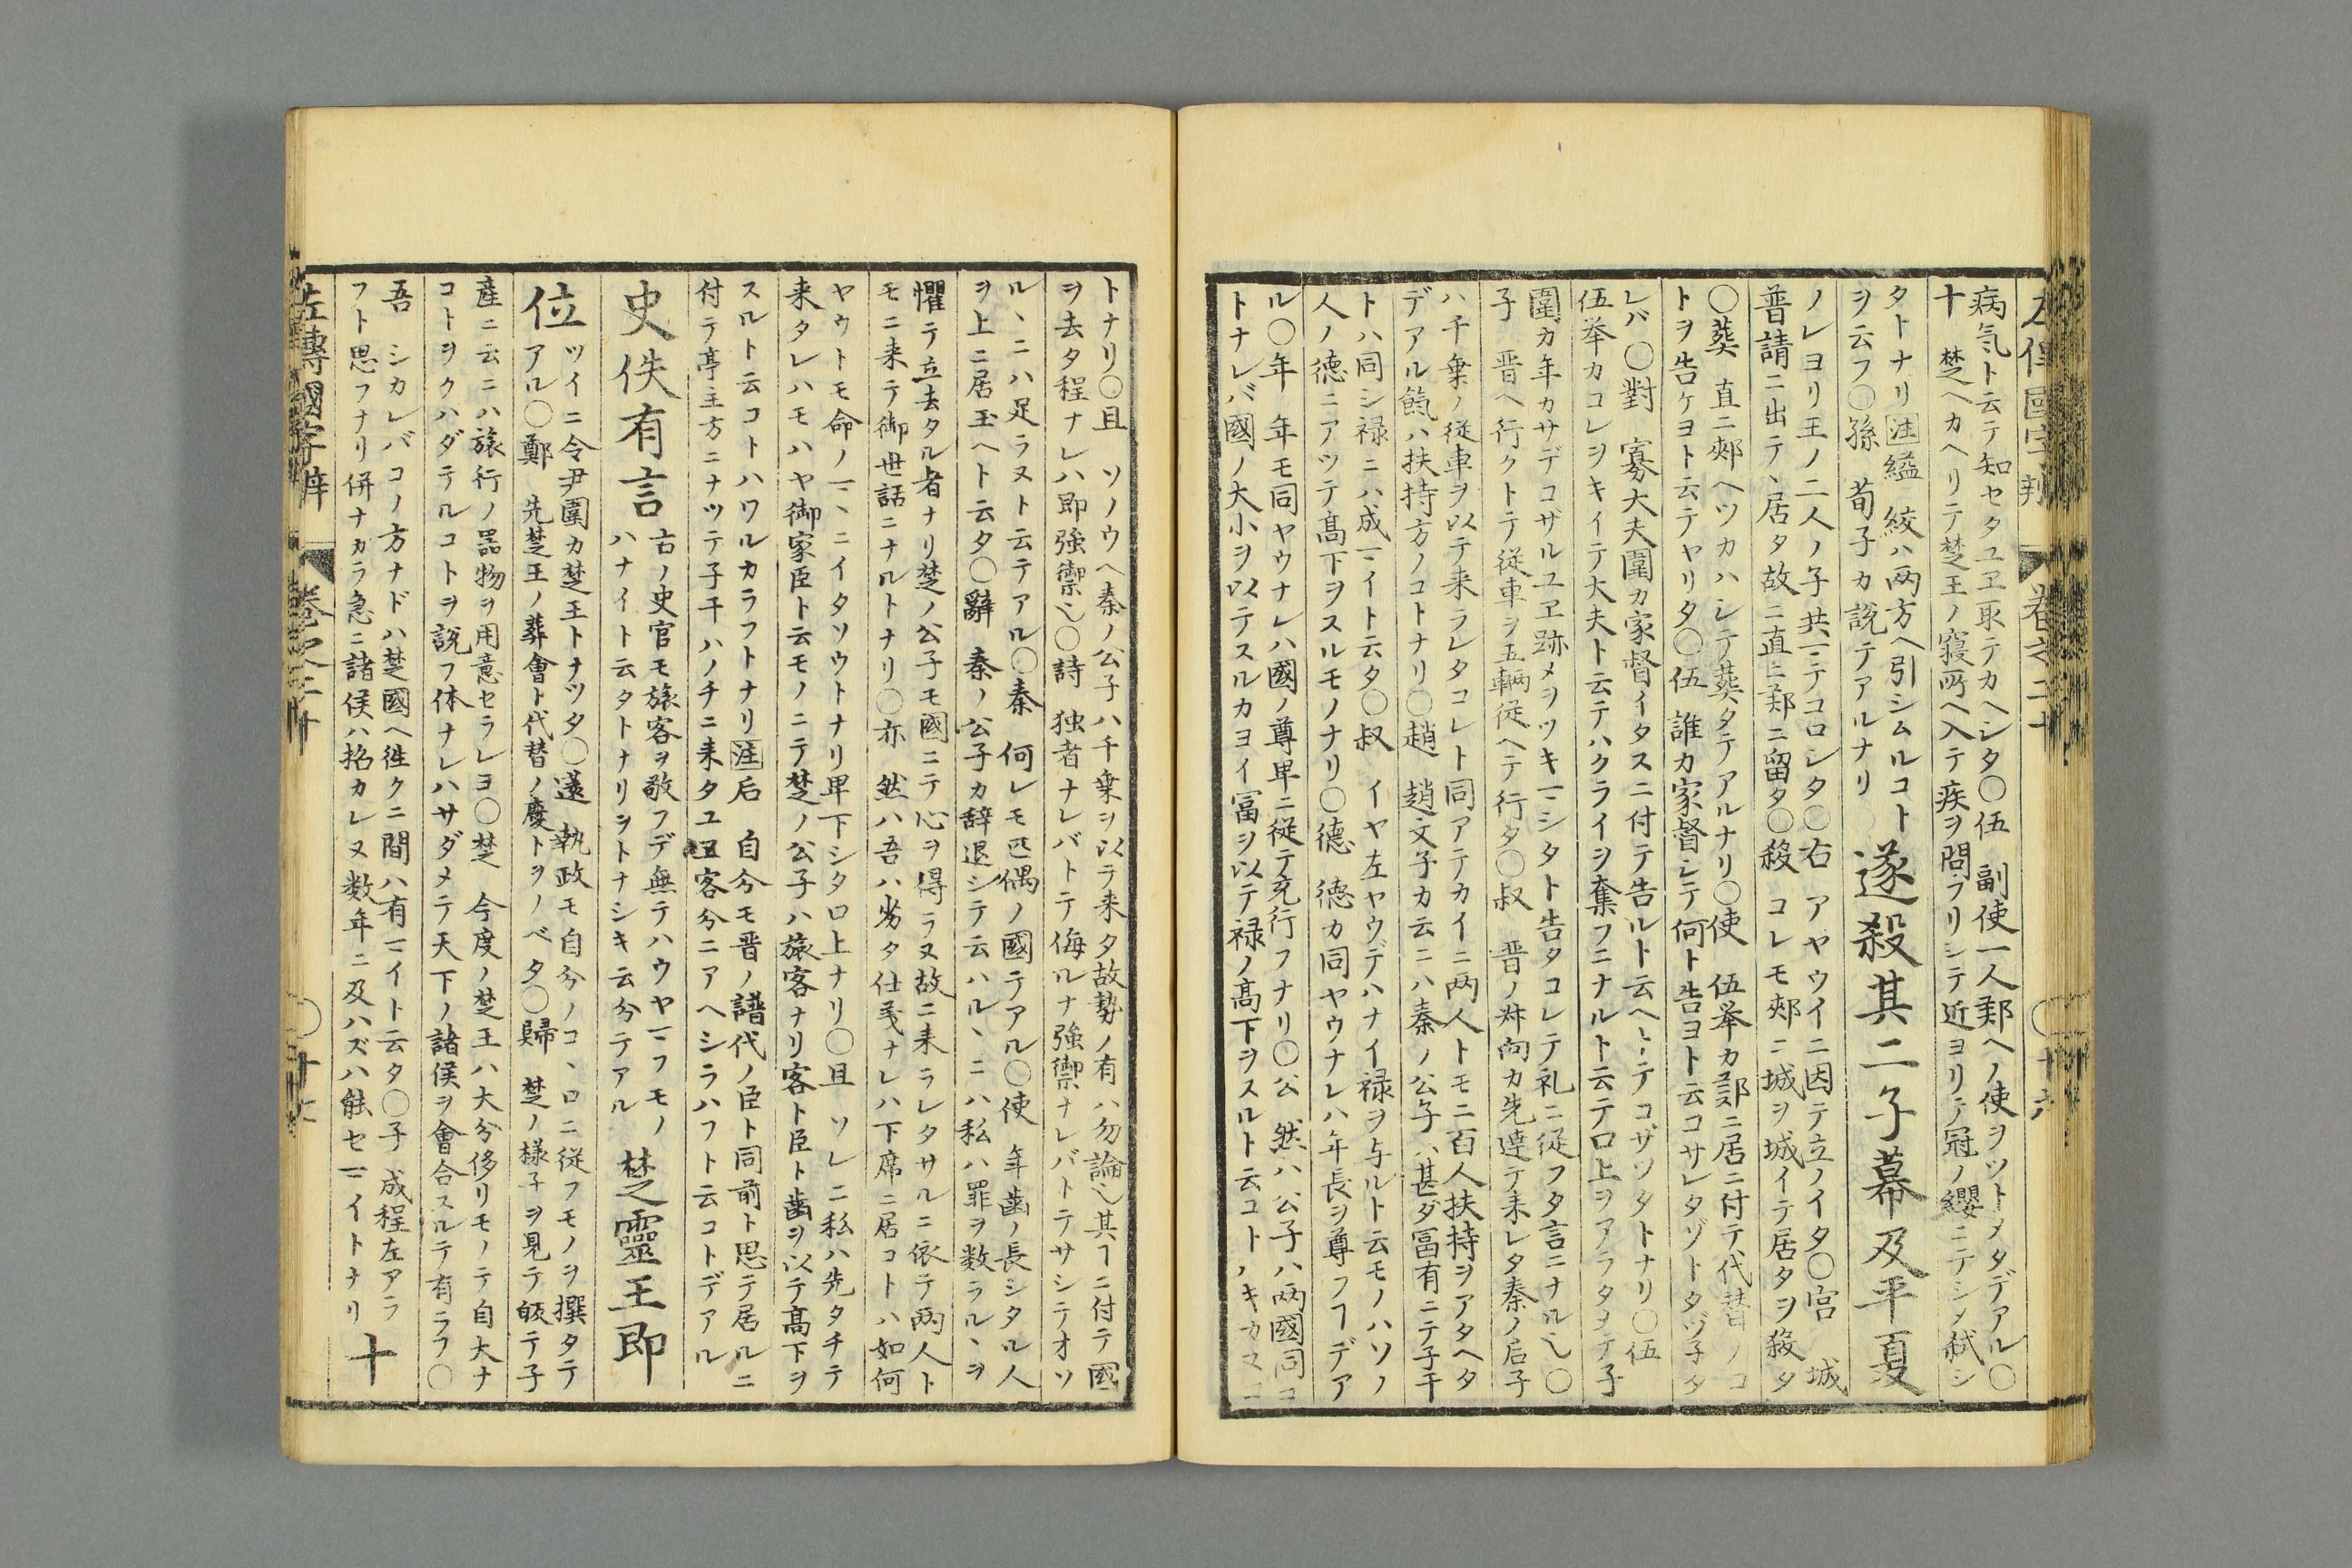 左傳國字辨 卷之二十 ○十六
病気ト云テ知セタユヱ取テカヘシタ○伍 副使一人鄭ヘノ使ヲツトメタデアル○
十 楚ヘカヘリテ楚王ノ寝所ヘ入テ疾ヲ問フリシテ近ヨリテ冠ノ纓ニテシメ弑シ
タトナリ 注 縊 絞ハ両方ヘ引シムルコト
ヲ云フ○孫 荀子カ説テアルナリ
遂殺其二子幕及平夏
ノレヨリ王ノ二人ノ子共ヿテコロシタ○右 アヤウイニ因テ立ノイタ○宮 城
普請ニ出テヽ居タ故ニ直ニ鄭ニ留タ○殺 コレモ郟ニ城ヲ城イテ居タヲ殺タ
○葬 直ニ郟ヘツカハシテ葬タテアルナリ○使 伍挙カ鄭ニ居ニ付テ代替ノコ
トヲ告ケヨト云テヤリタ○伍 誰カ家督シテ何ト告ヨト云コサレタゾトタヅ子タ
レバ○對 寡大夫圍カ家督イタスニ付テ告ルト云ヘヽテコザツタトナリ○伍
伍挙カコレヲキイテ大夫ト云テハクライヲ奪フニナルト云テ口上ヲアラタメテ子
圍カ年カサデコザルユヱ跡メヲツキヿシタト告タコレテ礼ニ従フタ言ニナル也○
子 晋ヘ行クトテ従車ヲ五輌従ヘテ行タ○叔 晋ノ叔向カ先達テ来レタ秦ノ后子
ハ千乗ノ従車ヲ以テ来ラレタコレト同アテカイニ両人トモニ百人扶持ヲアタヘタ
デアル餼ハ扶持方ノコトナリ○趙 趙文子カ云ニハ秦ノ公子ハ甚ダ冨有ニテ子干
トハ同シ禄ニハ成ヿイト云タ○叔 イヤ左ヤウデハナイ禄ヲ与ルト云モノハソノ
人ノ徳ニアツテ高下ヲスルモノナリ○徳 徳カ同ヤウナレハ年長ヲ尊フヿデア
ル○年 年モ同ヤウナレハ國ノ尊卑ニ従テ充行フナリ○公 然ハ公子ハ両國同コ
トナレバ國ノ大小ヲ以テスルカヨイ富ヲ以テ禄ノ高下ヲスルト云コトハキカヌニ
トナリ○且 ソノウヘ秦ノ公子ハ千乗ヲ以テ来タ故勢ノ有ハ勿論也其ヿニ付テ國
ヲ去タ程ナレハ即強禦也○詩 独者ナレバトテ侮ルナ強禦ナレバトテサシテオソ
ルヽニハ足ラヌト云テアル○秦 何レモ匹偶ノ國テアル○使 年歯ノ長シタル人
ヲ上ニ居玉ヘト云タ○辭 秦ノ公子カ辞退シテ云ハルヽニハ私ハ罪ヲ数ラルヽヲ
懼テ立去タル者ナリ楚ノ公子モ國ニテ心ヲ得ラヌ故ニ来ラレタサルニ依テ両人ト
モニ来テ御世話ニナルトナリ○亦 然ハ吾ハ劣タ仕義ナレハ下席ニ居コトハ如何
ヤウトモ命ノヿヽニイタソウトナリ卑下シタ口上ナリ○且 ソレニ私ハ先タチテ
来タレハモハヤ御家臣ト云モノニテ楚ノ公子ハ旅客ナリ客ト臣ト歯ヲ以テ高下ヲ
スルト云コトハワルカラフトナリ 注 后 自分モ晋ノ譜代ノ臣ト同前ト思テ居ルニ
付テ亭主方ニナツテ子干ハノチニ来タユヱ客分ニアヘシラハフト云コトデアル
史佚有言
古ノ史官モ旅客ヲ敬フデ無テハウヤヿフモノ
ハナイト云タトナリヲトナシキ云分テアル
楚靈王即
位
ツイニ令尹圍カ楚王トナツタ○薳 執政モ自分ノコヽロニ従フモノヲ撰タテ
アル○鄭 先楚王ノ葬會ト代替ノ慶トヲノベタ○歸 楚ノ様子ヲ見テ皈テ子
産ニ云ニハ旅行ノ器物ヲ用意セラレヨ○楚 今度ノ楚王ハ大分侈リモノテ自大ナ
コトヲクハダテルコトヲ説フ体ナレハサダメテ天下ノ諸侯ヲ會合スルテ有ラフ○
吾 シカレバコノ方ナドハ楚國ヘ徃クニ間ハ有ヿイト云タ○子 成程左アラ
フト思フナリ併ナカラ急ニ諸侯ハ招カレヌ数年ニ及ハズハ能セヿイトナリ
十
左傳國字辨 卷之二十 ○十七